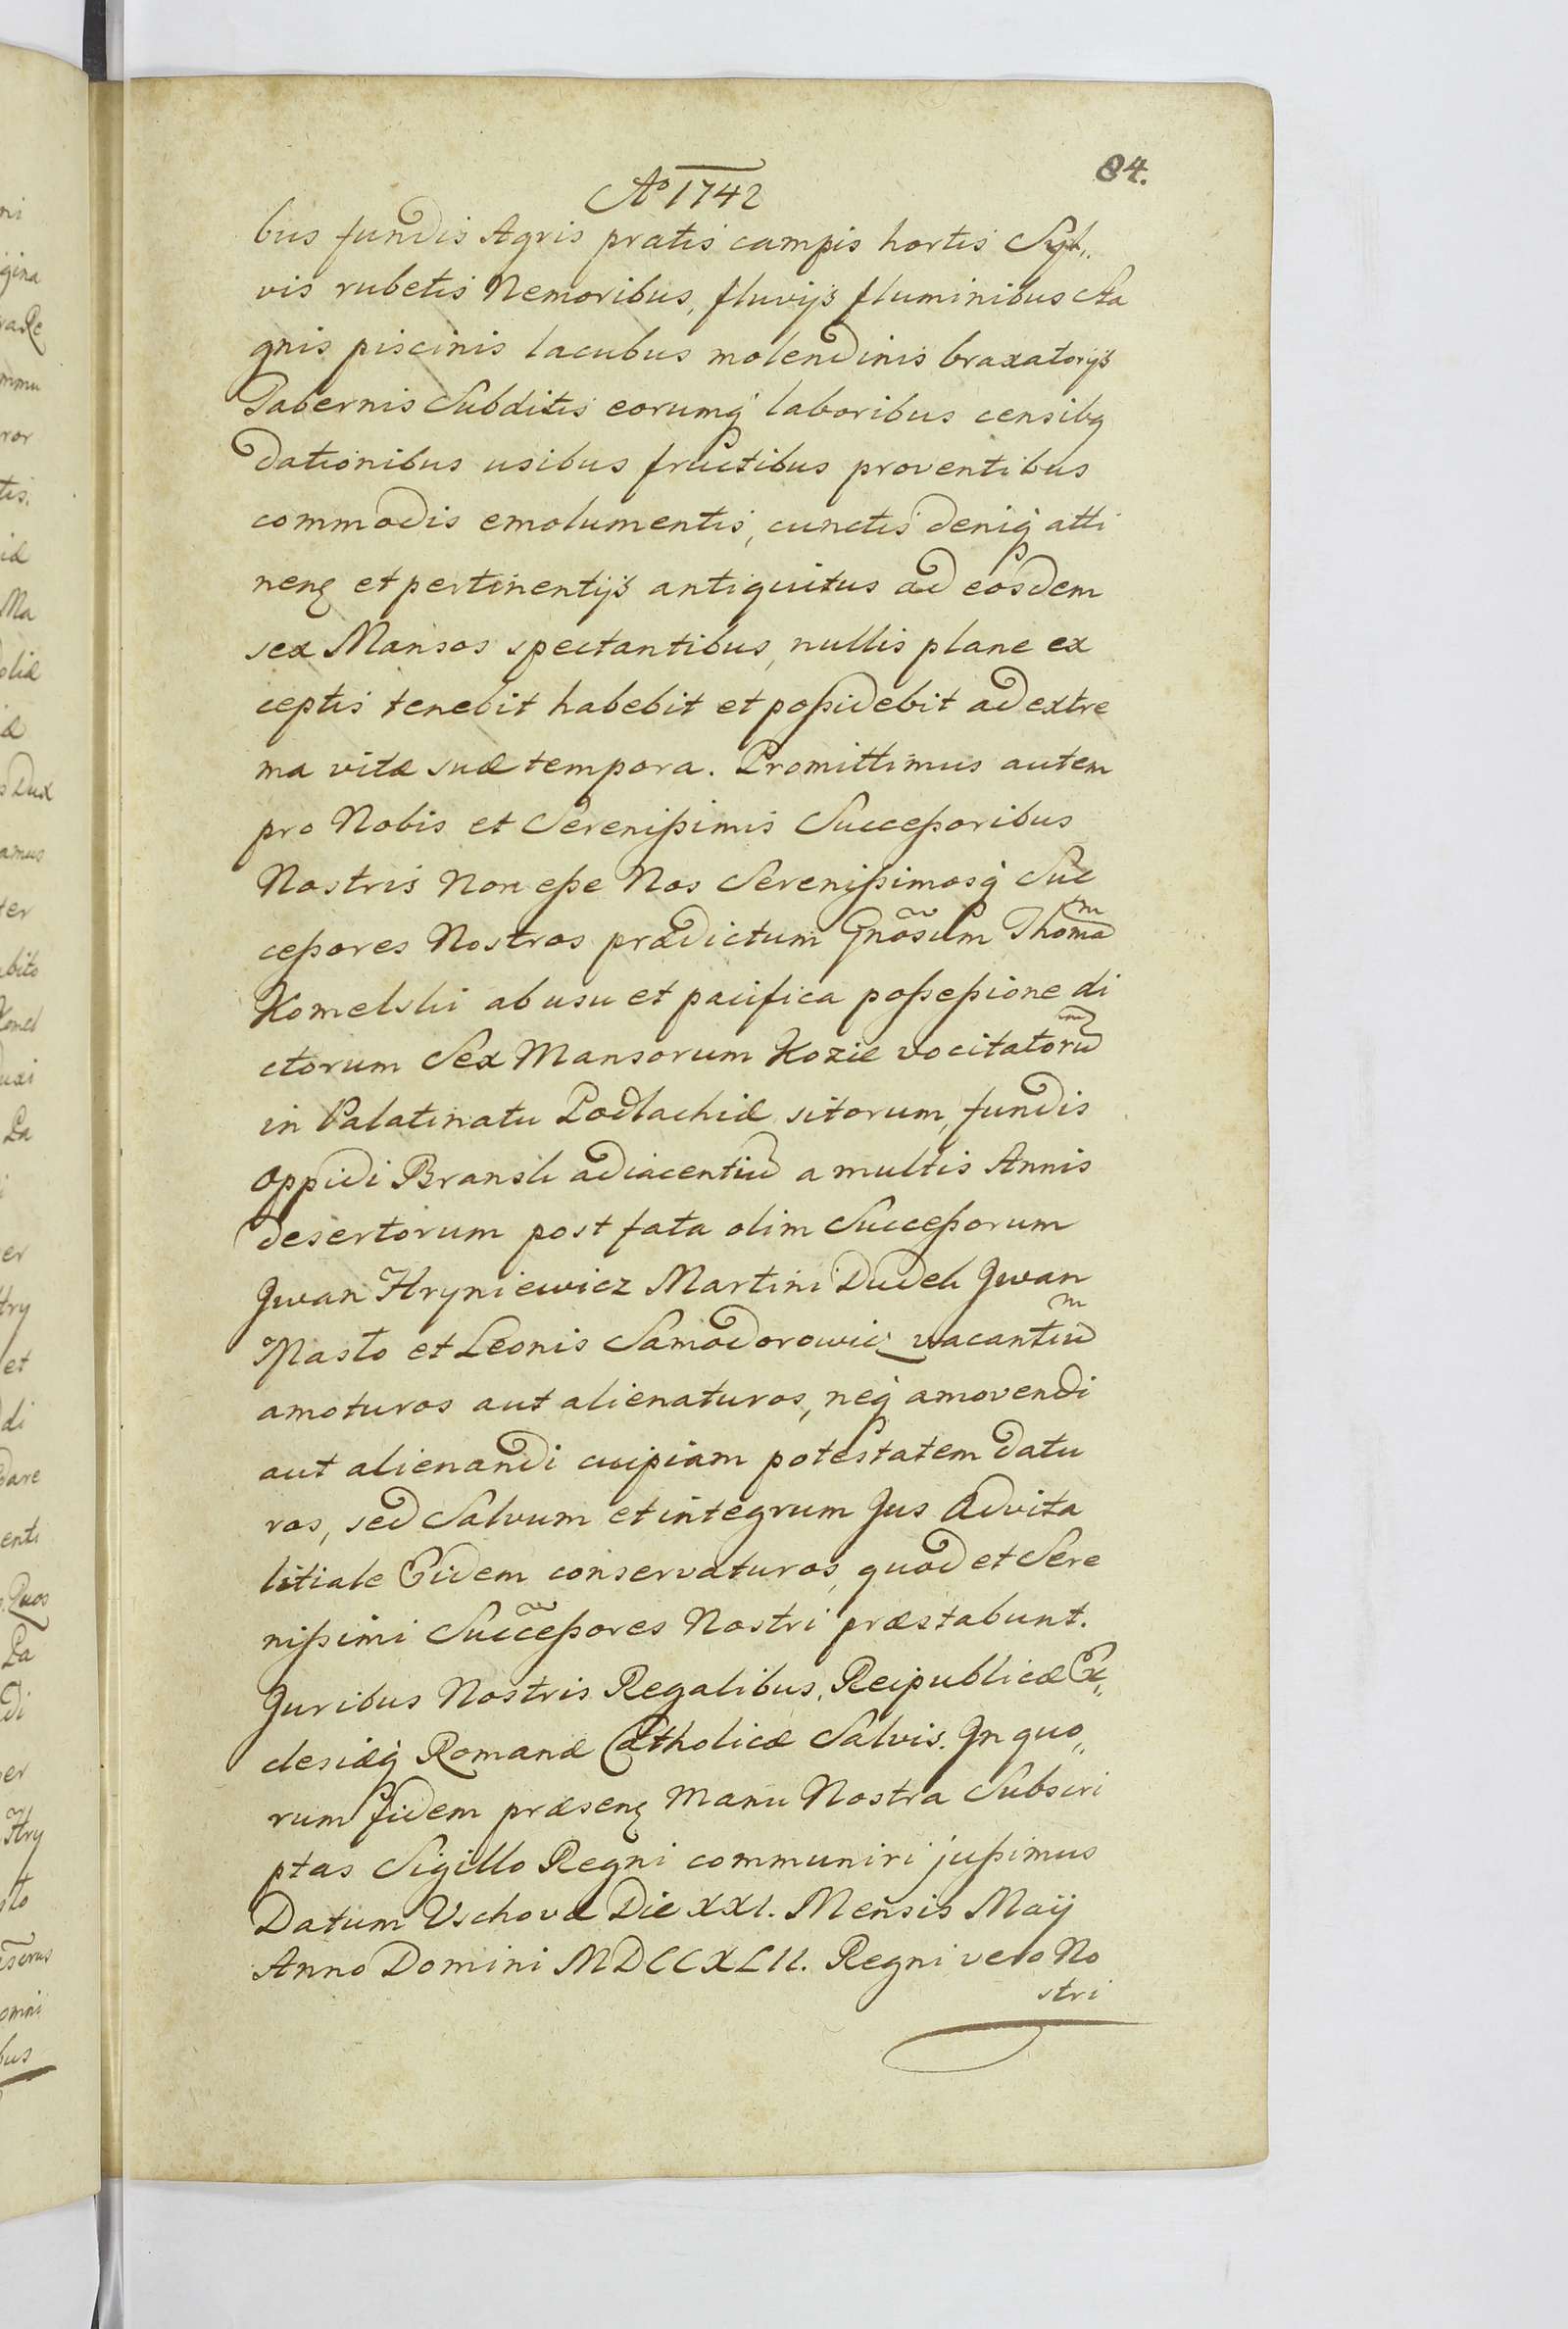 84.
Aº 1742
bus fundis Agris pratis campis hortis Syl„
vis rubetis Nemoribus, fluvijs fluminibus Sta
gnis piscinis lacubus molendinis braxatorijs
Tabernis Subditis eorumq́ laboribus censibq
dationibus usibus fructibus proventibus
commodis emolumentis, cunctis deniq́ atti
nenȩ et pertinentijs antiquitus ad eosdem
sex Mansos spectantibus, nullis plane ex
ceptis tenebit habebit et poßidebit ad extre
ma vitæ suæ tempora. Promittimus autem
pro Nobis et Serenißimis Succeßoribus
Nostris Non eße Nos Serenißimosq́ Suc
ceßores Nostros prædictum Gnõsum Thomam
Komelski ab usu et pacifica poßeßione di
ctorum Sex Mansorum Kozie vocitatorum
in Palatinatu Podlachiæ sitorum, fundis
Oppidi Bransk adiacentiu a multis Annis
desertorum post fata olim Succeßorum
Jwan Hryniewicz Martini Dudek Jwan
Masto et Leonis Samodorowic vacantium
amoturos aut alienaturos, neq́ amovendi
aut alienandi cuipiam potestatem datu
ros, sed Salvum et integrum Jus Advita
litiale Eidem conservaturos, quod et Sere
nißimi Succeßores Nostri præstabunt.
Juribus Nostris Regalibus, Reipublicæ Ec„
clesiæq́ Romanæ Catholicæ Salvis. Jn quo„
rum fidem præsenȩ Manu Nostra Subscri
ptas Sigillo Regni communiri jußimus
Datum Vschovæ Die XXI. Mensis Maij
Anno Domini MDCCXLII. Regni vero No
stri